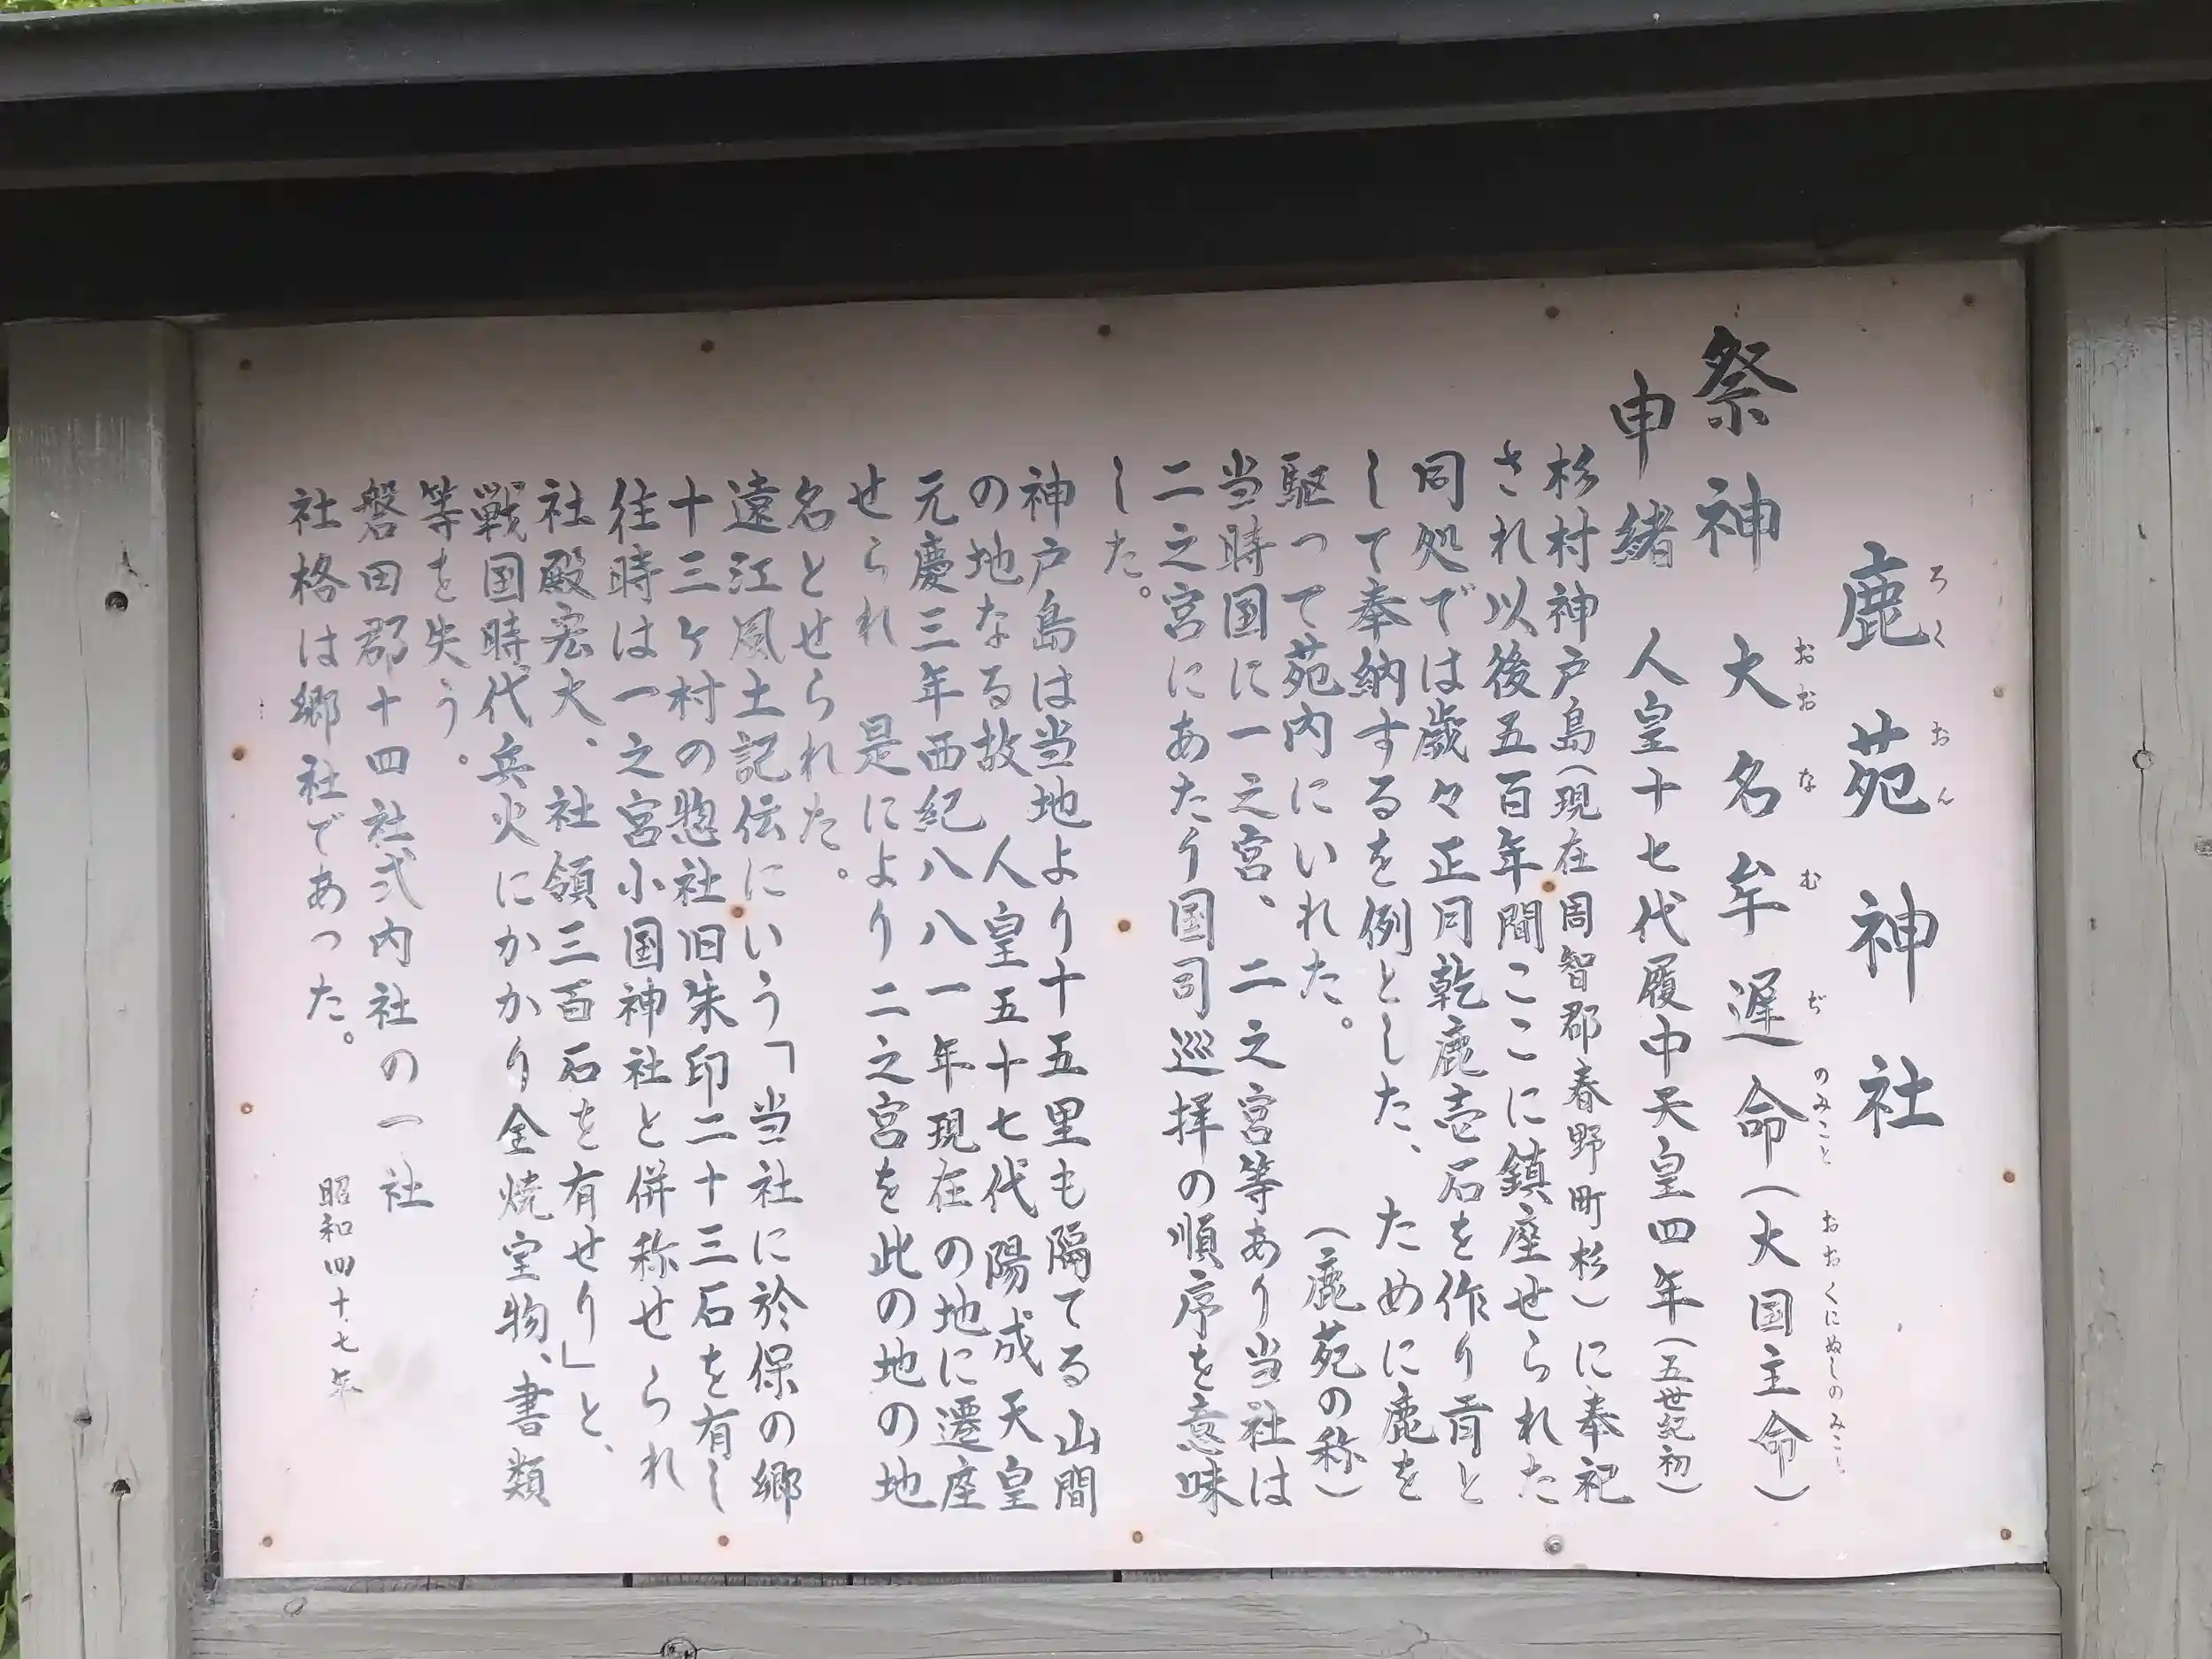 鹿苑神社
ろくおん
祭神 大名牟遅命(大国主命)
おおなむぢのみこと おおくにぬしのみこと
申緒 人皇十七代履中天皇四年(五世紀初)
杉村神戸島(現在周智郡春野町杉)に奉祀
され以後五百年間ここに鎮座せられた
同処では歳々正月乾鹿壱石を作り育と
して奉納するを例とした、ために鹿を
駆って苑内にいれた。(鹿苑の称)
当時国に一之宮、二之宮等あり当社は
二之宮にあたり国司巡拝の順序を意味
した。
神戸島は当地より十五里も隔てる山間
の地なる故 人皇五十七代陽成天皇
元慶三年西紀八八一年現在の地に遷座
せられ 是により二之宮を此の地の地
名とせられた。
遠江風土記伝にいう「当社に於保の郷
十三ヶ村の惣社旧朱印二十三石を有し
往時は一之宮小国神社と併称せられ
社殿宏大、社領三百石を有せり」と、
戦国時代兵火にかかり全焼宝物、書類
等を失う。
磐田郡十四社式内社の一社
社格は郷社であった。
昭和四十七年